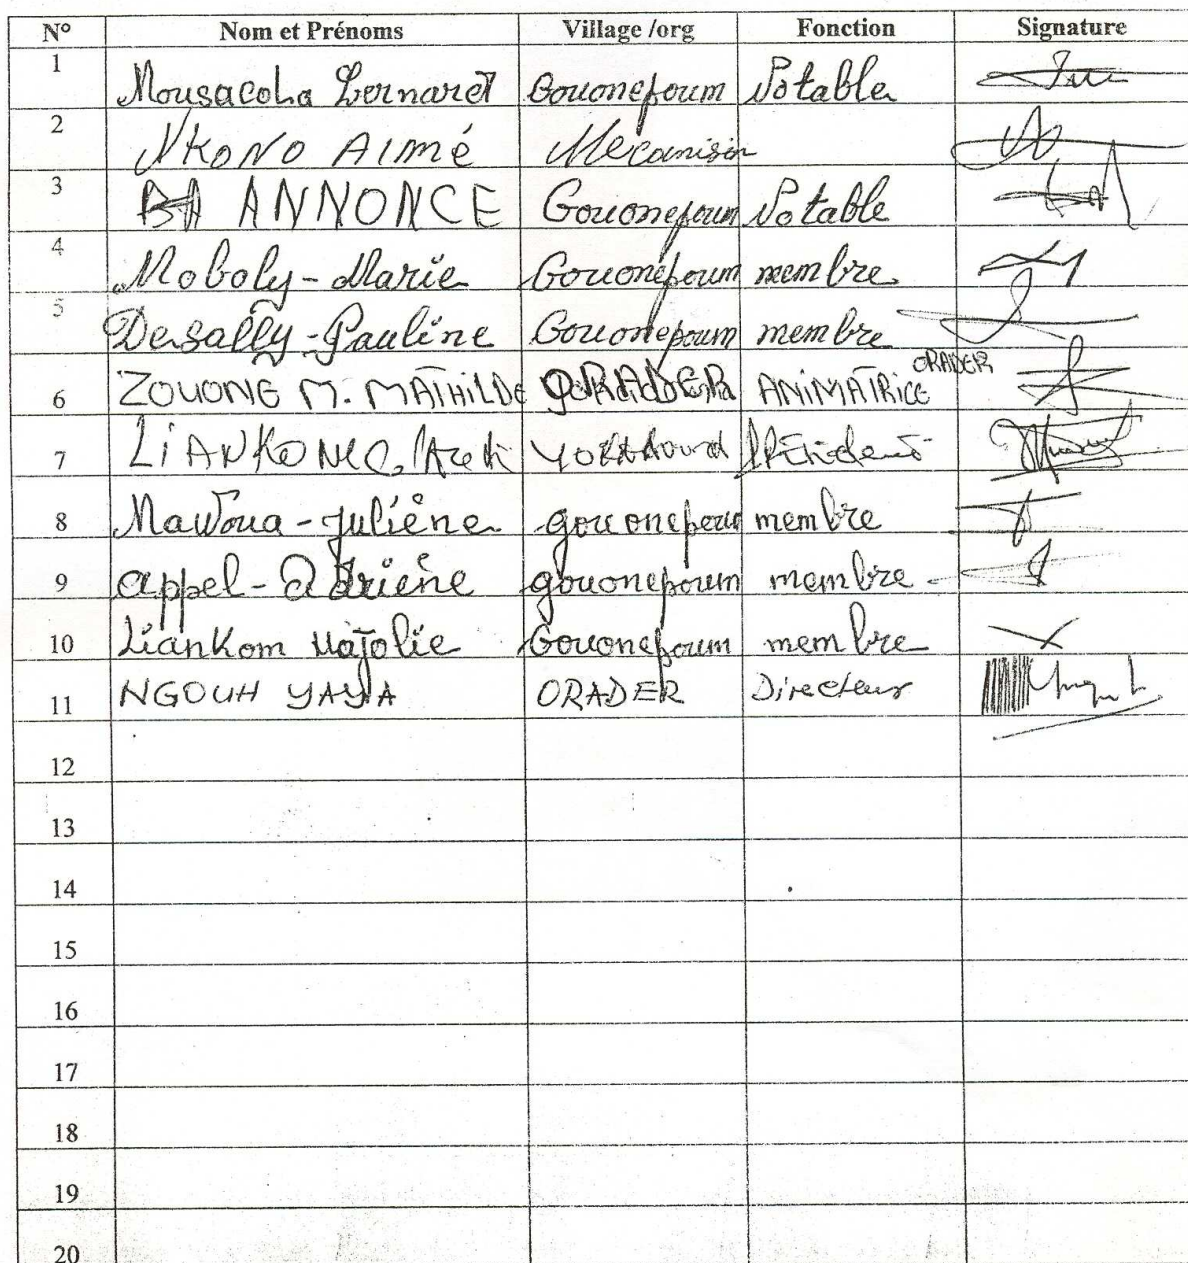 N° Nom et Prénoms Village /org Fonction Signature
1 Mousacola Bernaret Gouonepoum Notable
2 NKONO AIMé Mecanisin
3 ANNONCE Gouonepoum Notable
4 Moboly-Marie Gouonepoum membre
5 Desally-Pauline Gouonepoum membre
6 ZOUONG M. MATHILDE ORADER ANIMATRICE ORADER
7 YOKADOUMA
8 Mawoua-juliène gouonepoum membre
9 appel-Adriène gouonepoum membre
10 LianKom Majolie Gouonepoum membre
11 NGOUH YAYA ORADER Directeur
12
13
14
15
16
17
18
19
20